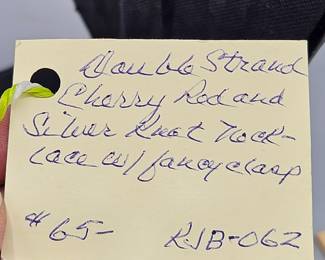 Double Strand
Cherry Red and
Silver Knot Neck-
lace w/ fancy clasp
$65- RJB-062